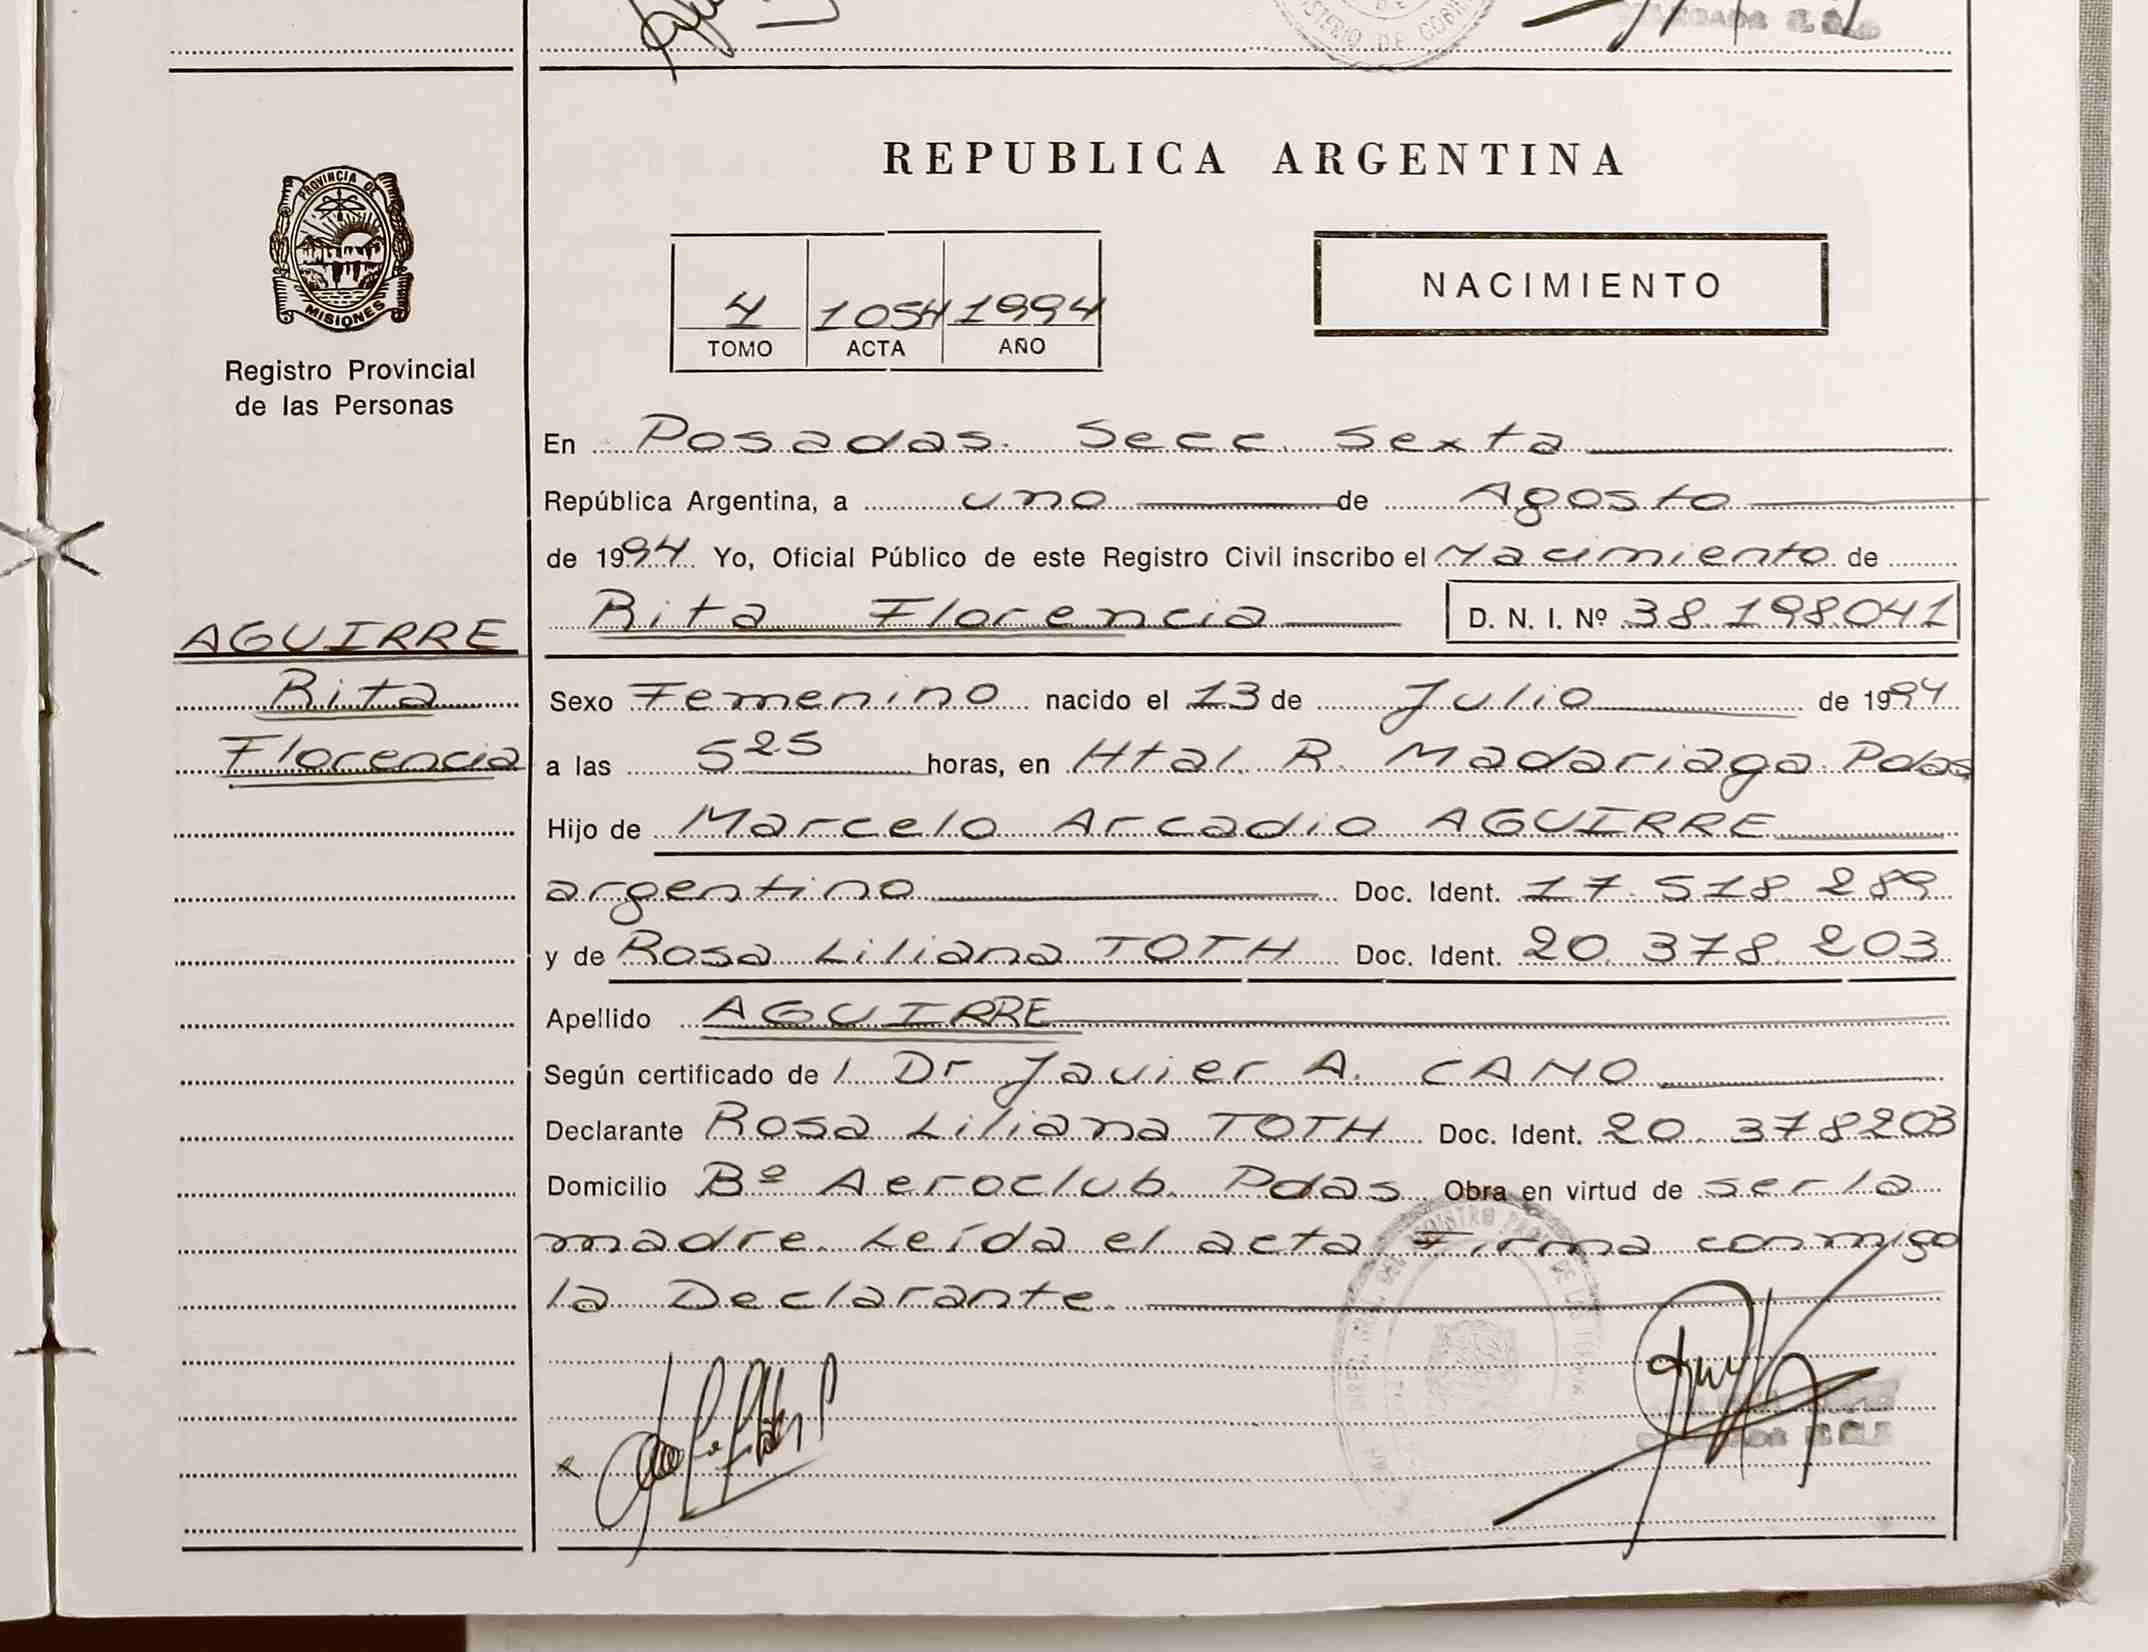 MINISTERIO DE GOBIE
REPUBLICA ARGENTINA
PROVINCIA DE
MISIONES
Registro Provincial
de las Personas
NACIMIENTO
4 1054 1994
TOMO ACTA AÑO
En Posadas. Secc. Sexta
República Argentina, a uno de Agosto
de 1994. Yo, Oficial Público de este Registro Civil inscribo el Nacimiento de
Rita Florencia D. N. I. Nº 38.198041
AGUIRRE
Rita
Florencia
Sexo Femenino nacido el 13 de Julio de 1994
a las 5 25 horas, en Htal. R. Madariaga Pdas
Hijo de Marcelo Arcadio AGUIRRE
argentino Doc. Ident. 17.518.289
y de Rosa Liliana TOTH Doc. Ident. 20.378.203
Apellido AGUIRRE
Según certificado de l Dr Javier A. CANO
Declarante Rosa Liliana TOTH Doc. Ident. 20.378203
Domicilio Bº Aeroclub. Pdas Obra en virtud de ser la
madre. Leída el acta Firma conmigo
la Declarante.